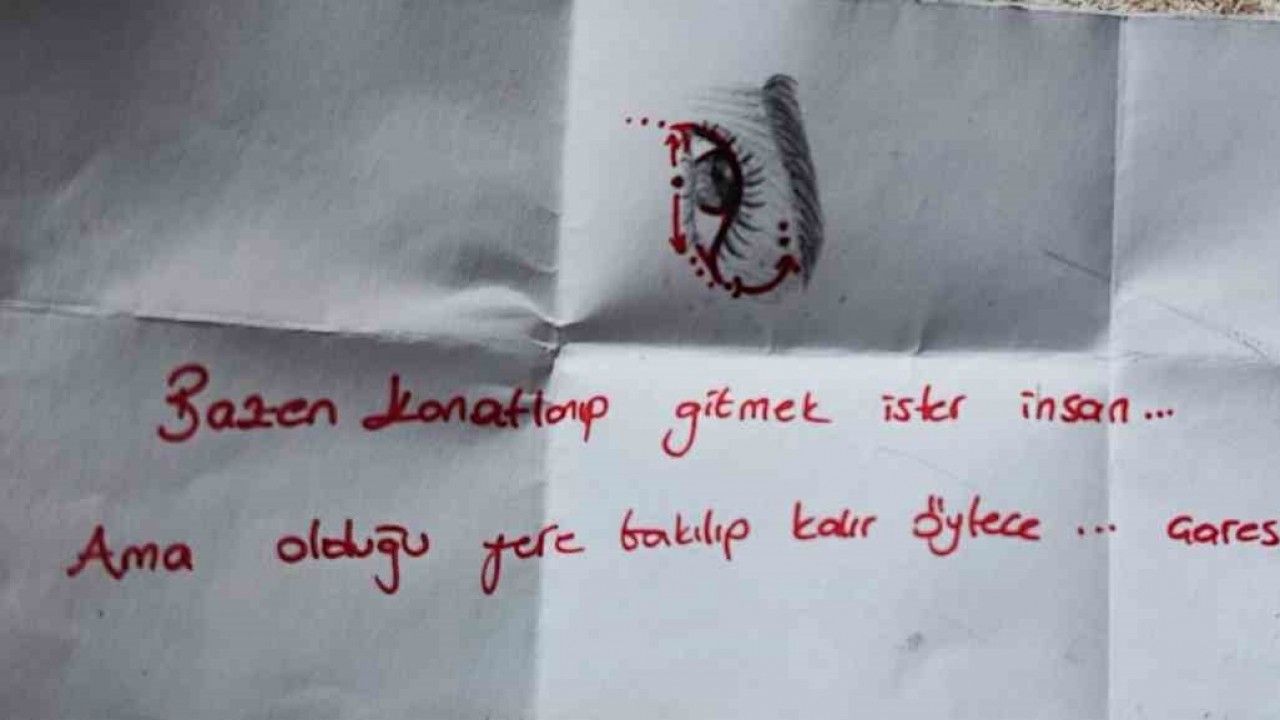 Bazen kanatlanıp gitmek ister insan...
Ama olduğu yere takılıp kalır öylece... çares